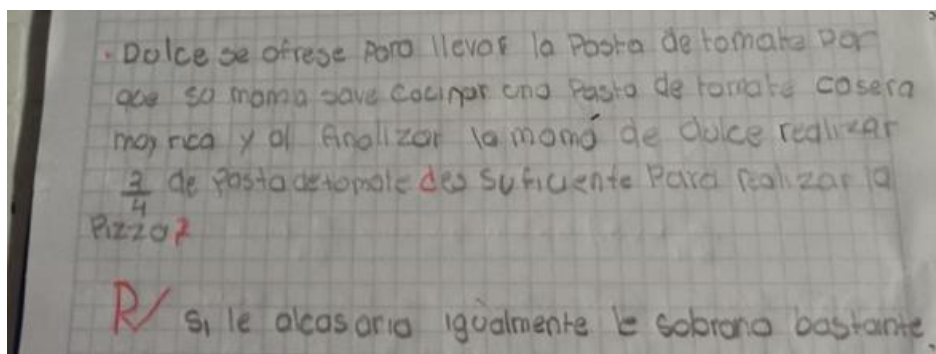 . Dolce se ofrese para llevar la Pasta de tomate Por
que so mama save cocinar una Pasta de tomate casera
moy rica y al finalizar la mamá de dulce realizar
3/4 de pasta de tomate ¿es suficiente Para realizar la
Pizza?
R/ si le alcasaria igualmente le sobraria bastante.